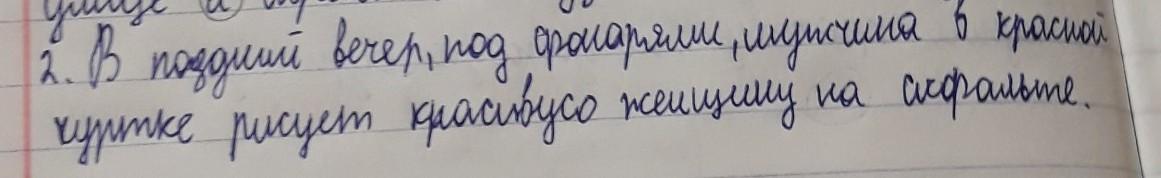 улице
2. В поздний вечер, под фонарями, мужчина в красной
куртке рисует красивую женщину на асфальте.